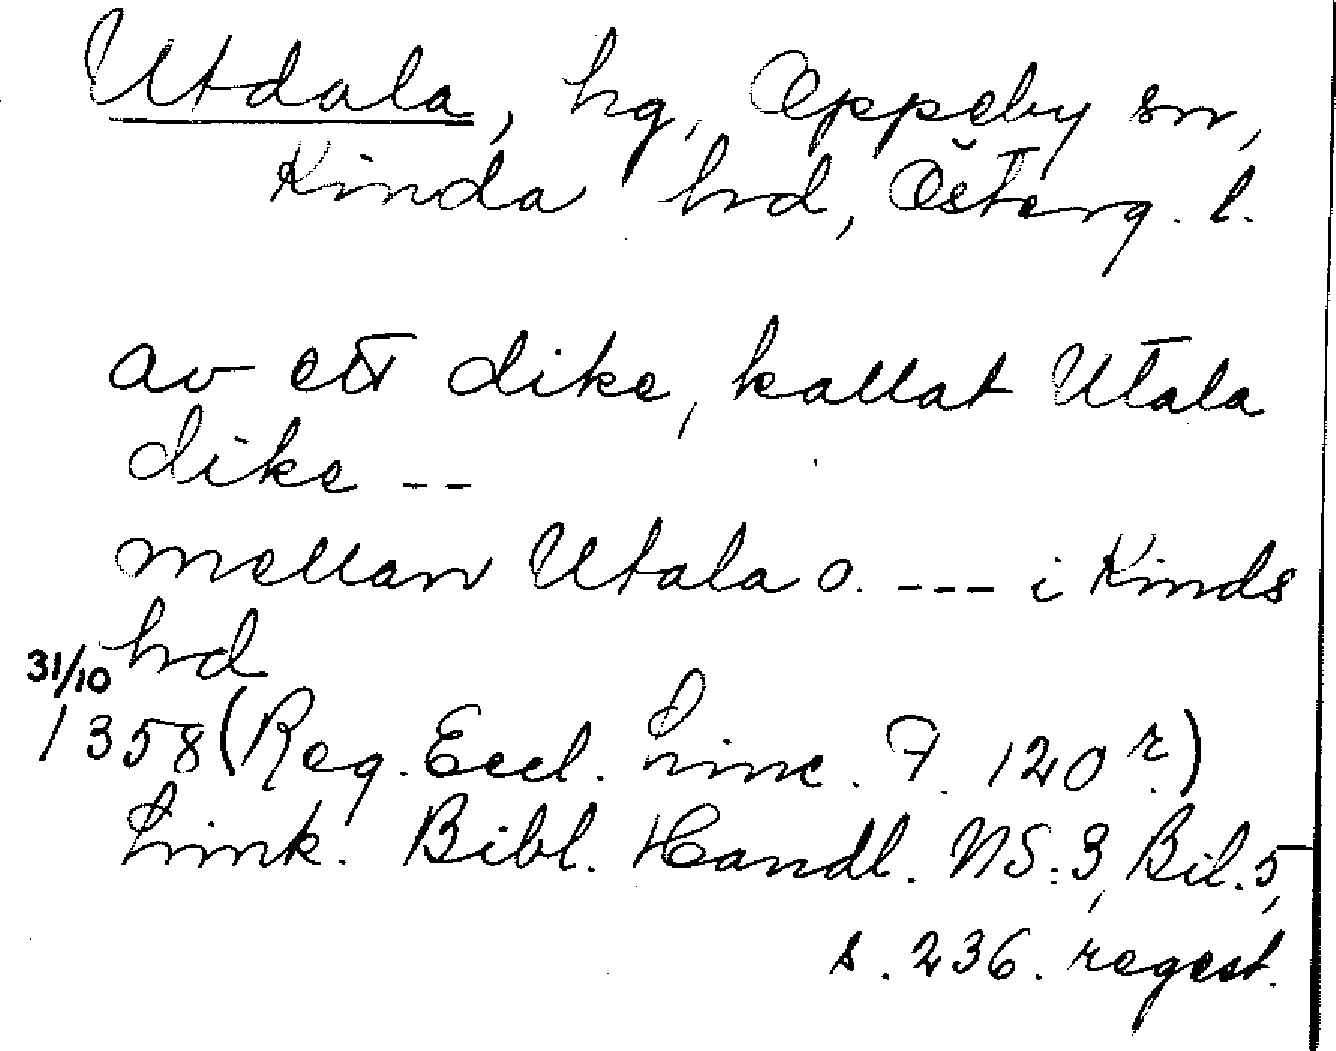 Utdala, hg, Oppeby sn,
Kinda hrd, Österg. l.
av ett dike, kallat Utala
dike --
mellan Utala o. --- i Kinds
hrd
31/10
1358 (Reg. Eccl. Linc. F. 120 r.)
Link. Bibl. Handl. NS:3, Bil. 5,
s. 236. regest.